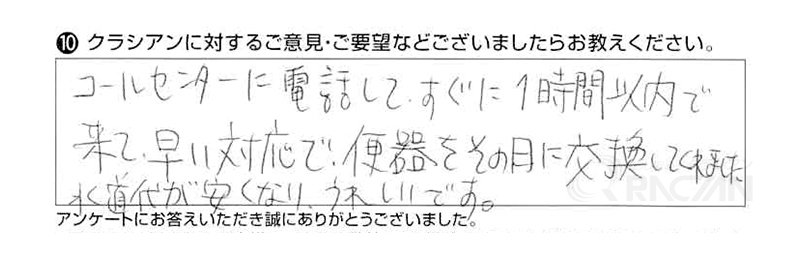 ⑩ クラシアンに対するご意見・ご要望などございましたらお教えください。
コールセンターに電話して、すぐに1時間以内で
来て、早い対応で、便器をその日に交換してくれました
水道代が安くなり、うれしいです。
アンケートにお答えいただき誠にありがとうございました。